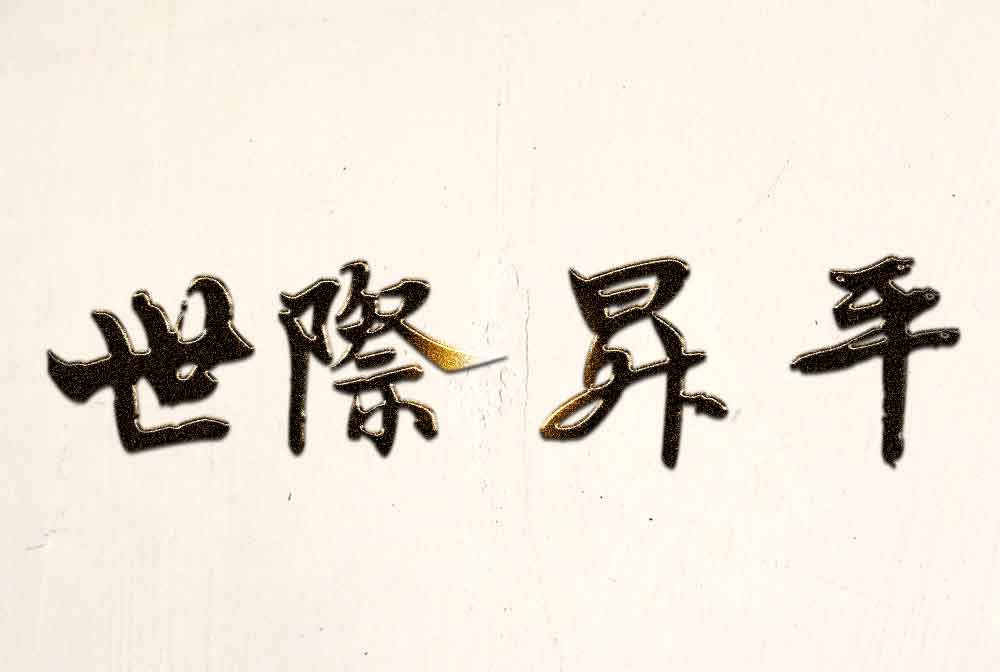 世際昇平